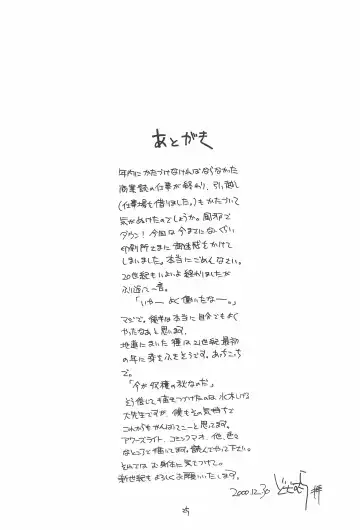 あとがき
年内にかたづけなければならなかった
商業誌の仕事が終わり、引っ越し
(仕事場も借りました。)もかたづいて
気がぬけたのでしょうか。風邪で
ダウン!今回は今までにないぐらい
印刷所さまに御迷惑をかけて
しまいました。本当にごめんなさい。
20世紀もいよいよ終わりましたが
ふり返って一言。
「いやー よく働いたなー。」
マジで。後半は本当に自分でもよく
やったなあと思います。
地道にまいた種は21世紀最初
の年に芽をふきそうです。あっちこっち
で。
「今が収穫の秋なのだ」
と
大先生ですが、僕もその気持ちで
これからもがんばってこーと思ってます。
アワーズライト、コミックマオ、他、色々
なところで描いてます。読んでやって下さい。
それでは お身体に気をつけて。
新世紀もよろしくお願いいたします。
2000.12.30